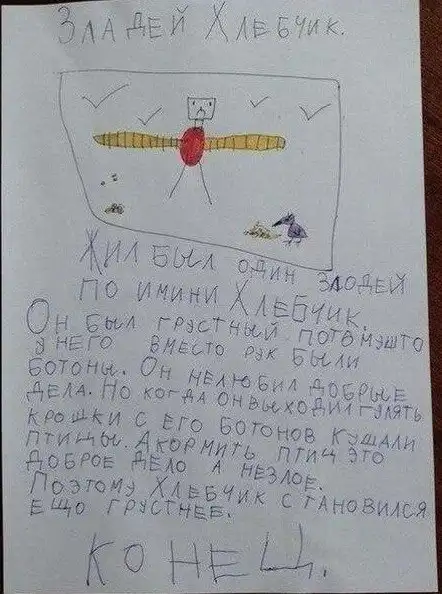 ЗЛАДЕЙ ХЛЕБЧИК.
ЖИЛ БЫЛ ОДИН ЗЛОДЕЙ
ПО ИМИНИ ХЛЕБЧИК.
ОН БЫЛ ГРУСТНЫЙ ПОТОМУШТО
У НЕГО ВМЕСТО РУК БЫЛИ
БОТОНЫ. ОН НЕЛЮБИЛ ДОБРЫЕ
ДЕЛА. НО КОГДА ОН ВЫХОДИЛ ГУЛЯТЬ
КРОШКИ С ЕГО БОТОНОВ КУШАЛИ
ПТИЦЫ. А КОРМИТЬ ПТИЦ ЭТО
ДОБРОЕ ДЕЛО А НЕЗЛОЕ.
ПОЭТОМУ ХЛЕБЧИК СТАНОВИЛСЯ
ЕЩО ГРУСТНЕЕ.
КОНЕЦ.